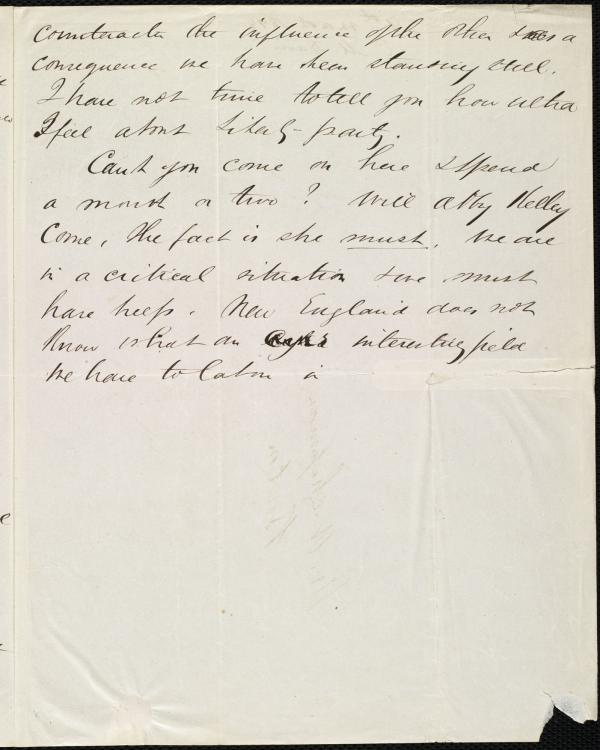 counteracts the influence of the other & as a
consequence we have been standing still.
I have not time to tell you how ultra
I feel about Liberty-party.
Can't you come on here & spend
a month or two? Will Abby Kelley
Come, the fact is she must. We are
in a critical situation & we must
have help. New England does not
Know what an interesting field
We have to labor in